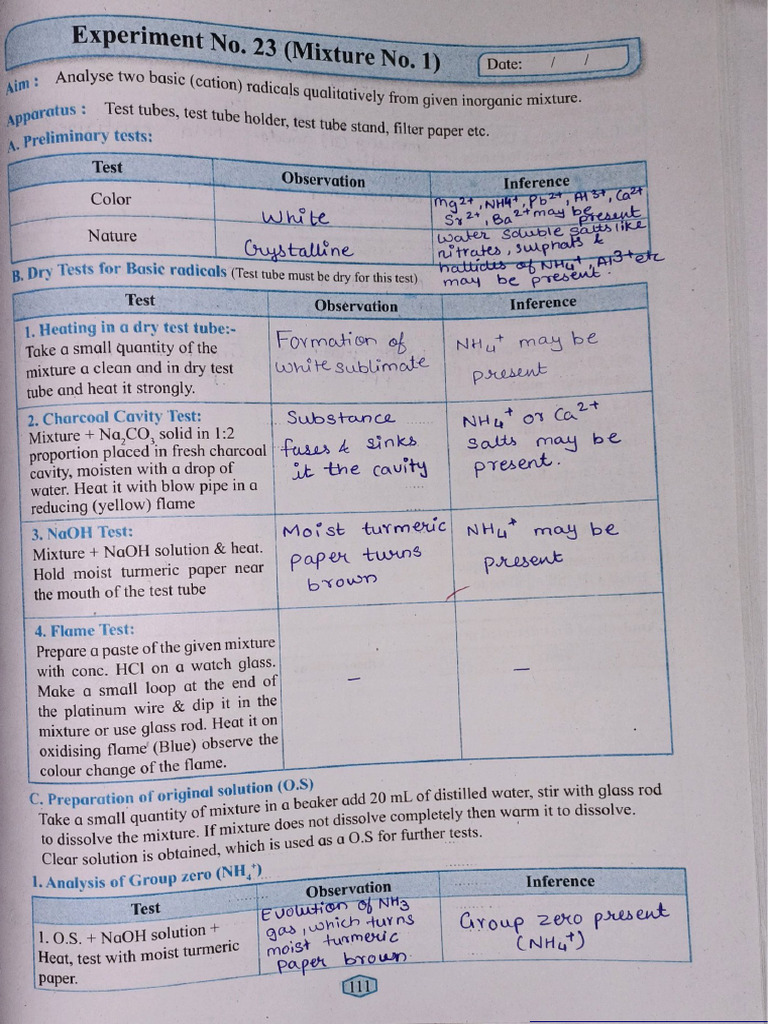 Experiment No. 23 (Mixture No. 1)
Date: / /
Aim : Analyse two basic (cation) radicals qualitatively from given inorganic mixture.
Apparatus : Test tubes, test tube holder, test tube stand, filter paper etc.
A. Preliminary tests:
Test
Observation
Inference
Color
White
Mg2+, NH4+, Pb2+, Al3+, Ca2+
Sr2+, Ba2+ may be
present
Nature
Crystalline
Water soluble salts like
nitrates, sulphats &
hallides of NH4+, Al3+ etc
may be present.
B. Dry Tests for Basic radicals (Test tube must be dry for this test)
Test
Observation
Inference
1. Heating in a dry test tube:-
Take a small quantity of the
mixture a clean and in dry test
tube and heat it strongly.
Formation of
white sublimate
NH4+ may be
present
2. Charcoal Cavity Test:
Mixture + Na2CO3 solid in 1:2
proportion placed in fresh charcoal
cavity, moisten with a drop of
water. Heat it with blow pipe in a
reducing (yellow) flame
Substance
fuses & sinks
it the cavity
NH4+ or Ca2+
salts may be
present.
3. NaOH Test:
Mixture + NaOH solution & heat.
Hold moist turmeric paper near
the mouth of the test tube
Moist turmeric
paper turns
brown
NH4+ may be
present
4. Flame Test:
Prepare a paste of the given mixture
with conc. HCl on a watch glass.
Make a small loop at the end of
the platinum wire & dip it in the
mixture or use glass rod. Heat it on
oxidising flame (Blue) observe the
colour change of the flame.
–
–
C. Preparation of original solution (O.S)
Take a small quantity of mixture in a beaker add 20 mL of distilled water, stir with glass rod
to dissolve the mixture. If mixture does not dissolve completely then warm it to dissolve.
Clear solution is obtained, which is used as a O.S for further tests.
1. Analysis of Group zero (NH4+)
Test
Observation
Inference
1. O.S. + NaOH solution +
Heat, test with moist turmeric
paper.
Evolution of NH3
gas, which turns
moist turmeric
paper brown.
Group zero present
(NH4+)
111